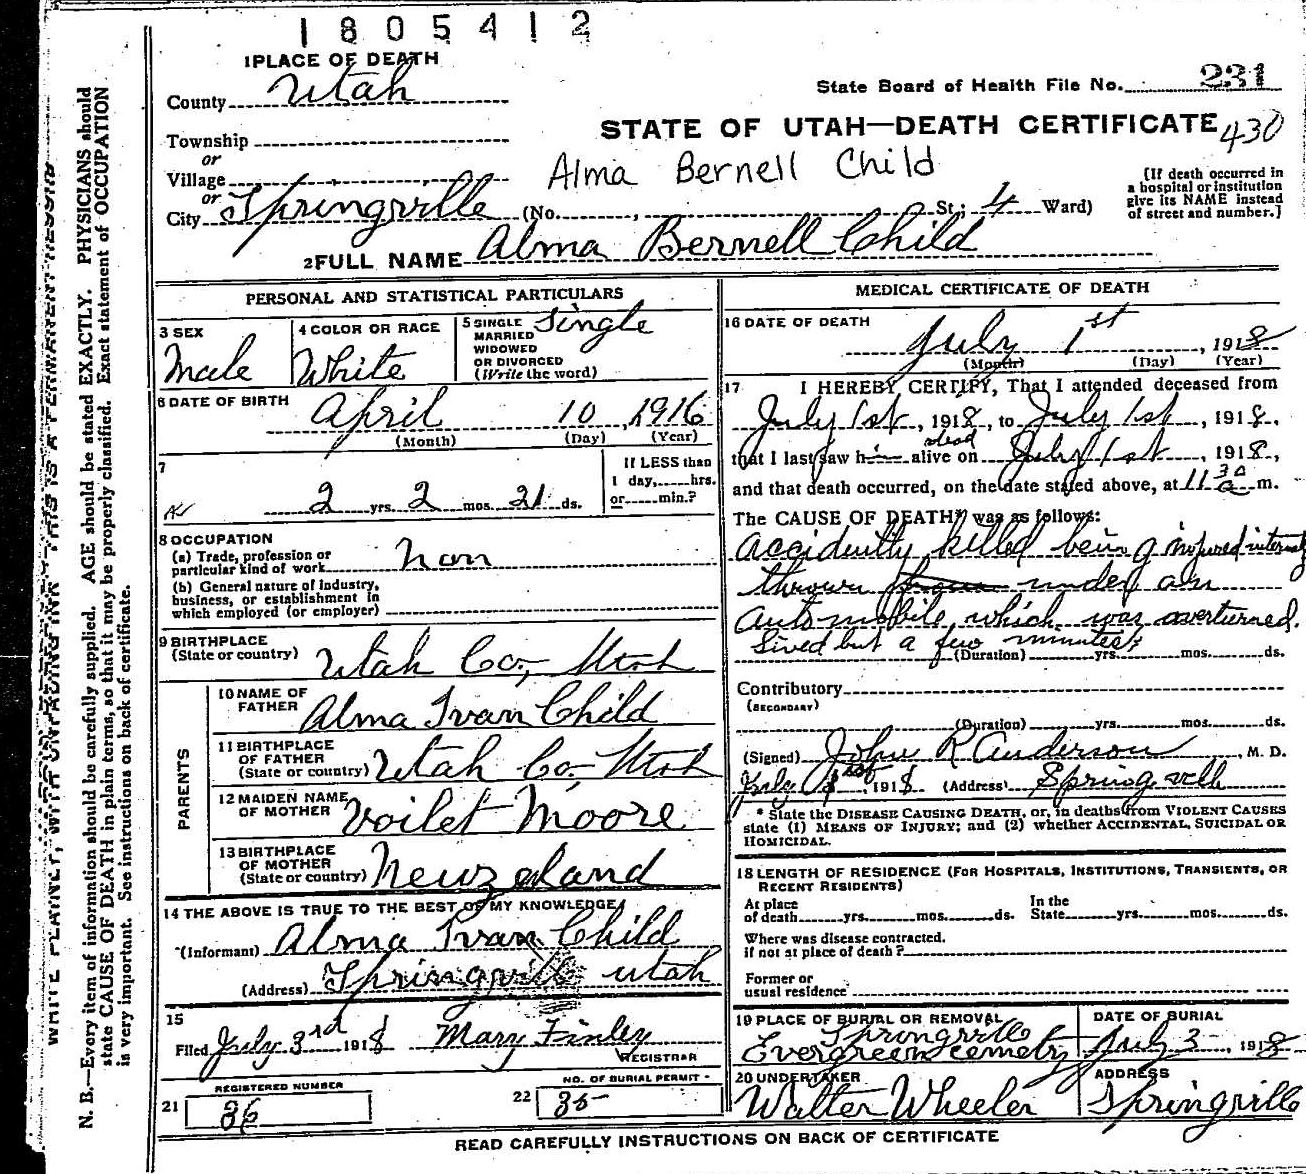 1805412
1 PLACE OF DEATH
County Utah
State Board of Health File No. 231
STATE OF UTAH—DEATH CERTIFICATE 430
Township
or
Village
or
City Springville (No. , St; 4 Ward)
Alma Bernell Child
[If death occurred in
a hospital or institution
give its NAME instead
of street and number.]
2 FULL NAME Alma Bernell Child
PERSONAL AND STATISTICAL PARTICULARS
3 SEX
Male
4 COLOR OR RACE
White
5 SINGLE
MARRIED
WIDOWED
OR DIVORCED
(Write the word)
Single
6 DATE OF BIRTH
April 10, 1916
(Month) (Day) (Year)
7
2 yrs. 2 mos. 21 ds.
If LESS than
1 day, hrs.
or min.?
8 OCCUPATION
(a) Trade, profession or
particular kind of work non
(b) General nature of industry,
business, or establishment in
which employed (or employer)
9 BIRTHPLACE
(State or country) Utah Co, Utah
PARENTS
10 NAME OF
FATHER Alma Ivan Child
11 BIRTHPLACE
OF FATHER
(State or country) Utah Co. Utah
12 MAIDEN NAME
OF MOTHER Voilet Moore
13 BIRTHPLACE
OF MOTHER
(State or country) Newzeland
14 THE ABOVE IS TRUE TO THE BEST OF MY KNOWLEDGE
(Informant) Alma Ivan Child
(Address) Springville Utah
15
Filed July 3rd 1918 Mary Finley
REGISTRAR
REGISTERED NUMBER
21 36
NO. OF BURIAL PERMIT
22 35
MEDICAL CERTIFICATE OF DEATH
16 DATE OF DEATH
July 1st, 1918
(Month) (Day) (Year)
17 I HEREBY CERTIFY, That I attended deceased from
July 1st, 1918, to July 1st, 1918,
dead
that I last saw him alive on July 1st, 1918,
and that death occurred, on the date stated above, at 11 30 a m.
The CAUSE OF DEATH* was as follows:
Accidently killed being injured internaly
thrown under an
automobile which was overturned.
Lived but a few minutes,
(Duration) yrs. mos. ds.
Contributory
(SECONDARY)
(Duration) yrs. mos. ds.
(Signed) John R Anderson, M. D.
July 1st, 1918 (Address) Springville
* State the DISEASE CAUSING DEATH, or, in deaths from VIOLENT CAUSES
state (1) MEANS OF INJURY; and (2) whether ACCIDENTAL, SUICIDAL OR
HOMICIDAL.
18 LENGTH OF RESIDENCE (FOR HOSPITALS, INSTITUTIONS, TRANSIENTS, OR
RECENT RESIDENTS)
At place
of death yrs. mos. ds.
In the
State yrs. mos. ds.
Where was disease contracted.
if not at place of death?
Former or
usual residence
19 PLACE OF BURIAL OR REMOVAL
Springville
Evergreen cemetry
DATE OF BURIAL
July 3, 1918
20 UNDERTAKER
Walter Wheeler
ADDRESS
Springville
READ CAREFULLY INSTRUCTIONS ON BACK OF CERTIFICATE
WRITE PLAINLY, WITH UNFADING INK—THIS IS A PERMANENT RECORD
N. B.—Every item of information should be carefully supplied. AGE should be stated EXACTLY. PHYSICIANS should
state CAUSE OF DEATH in plain terms, so that it may be properly classified. Exact statement of OCCUPATION
is very important. See instructions on back of certificate.